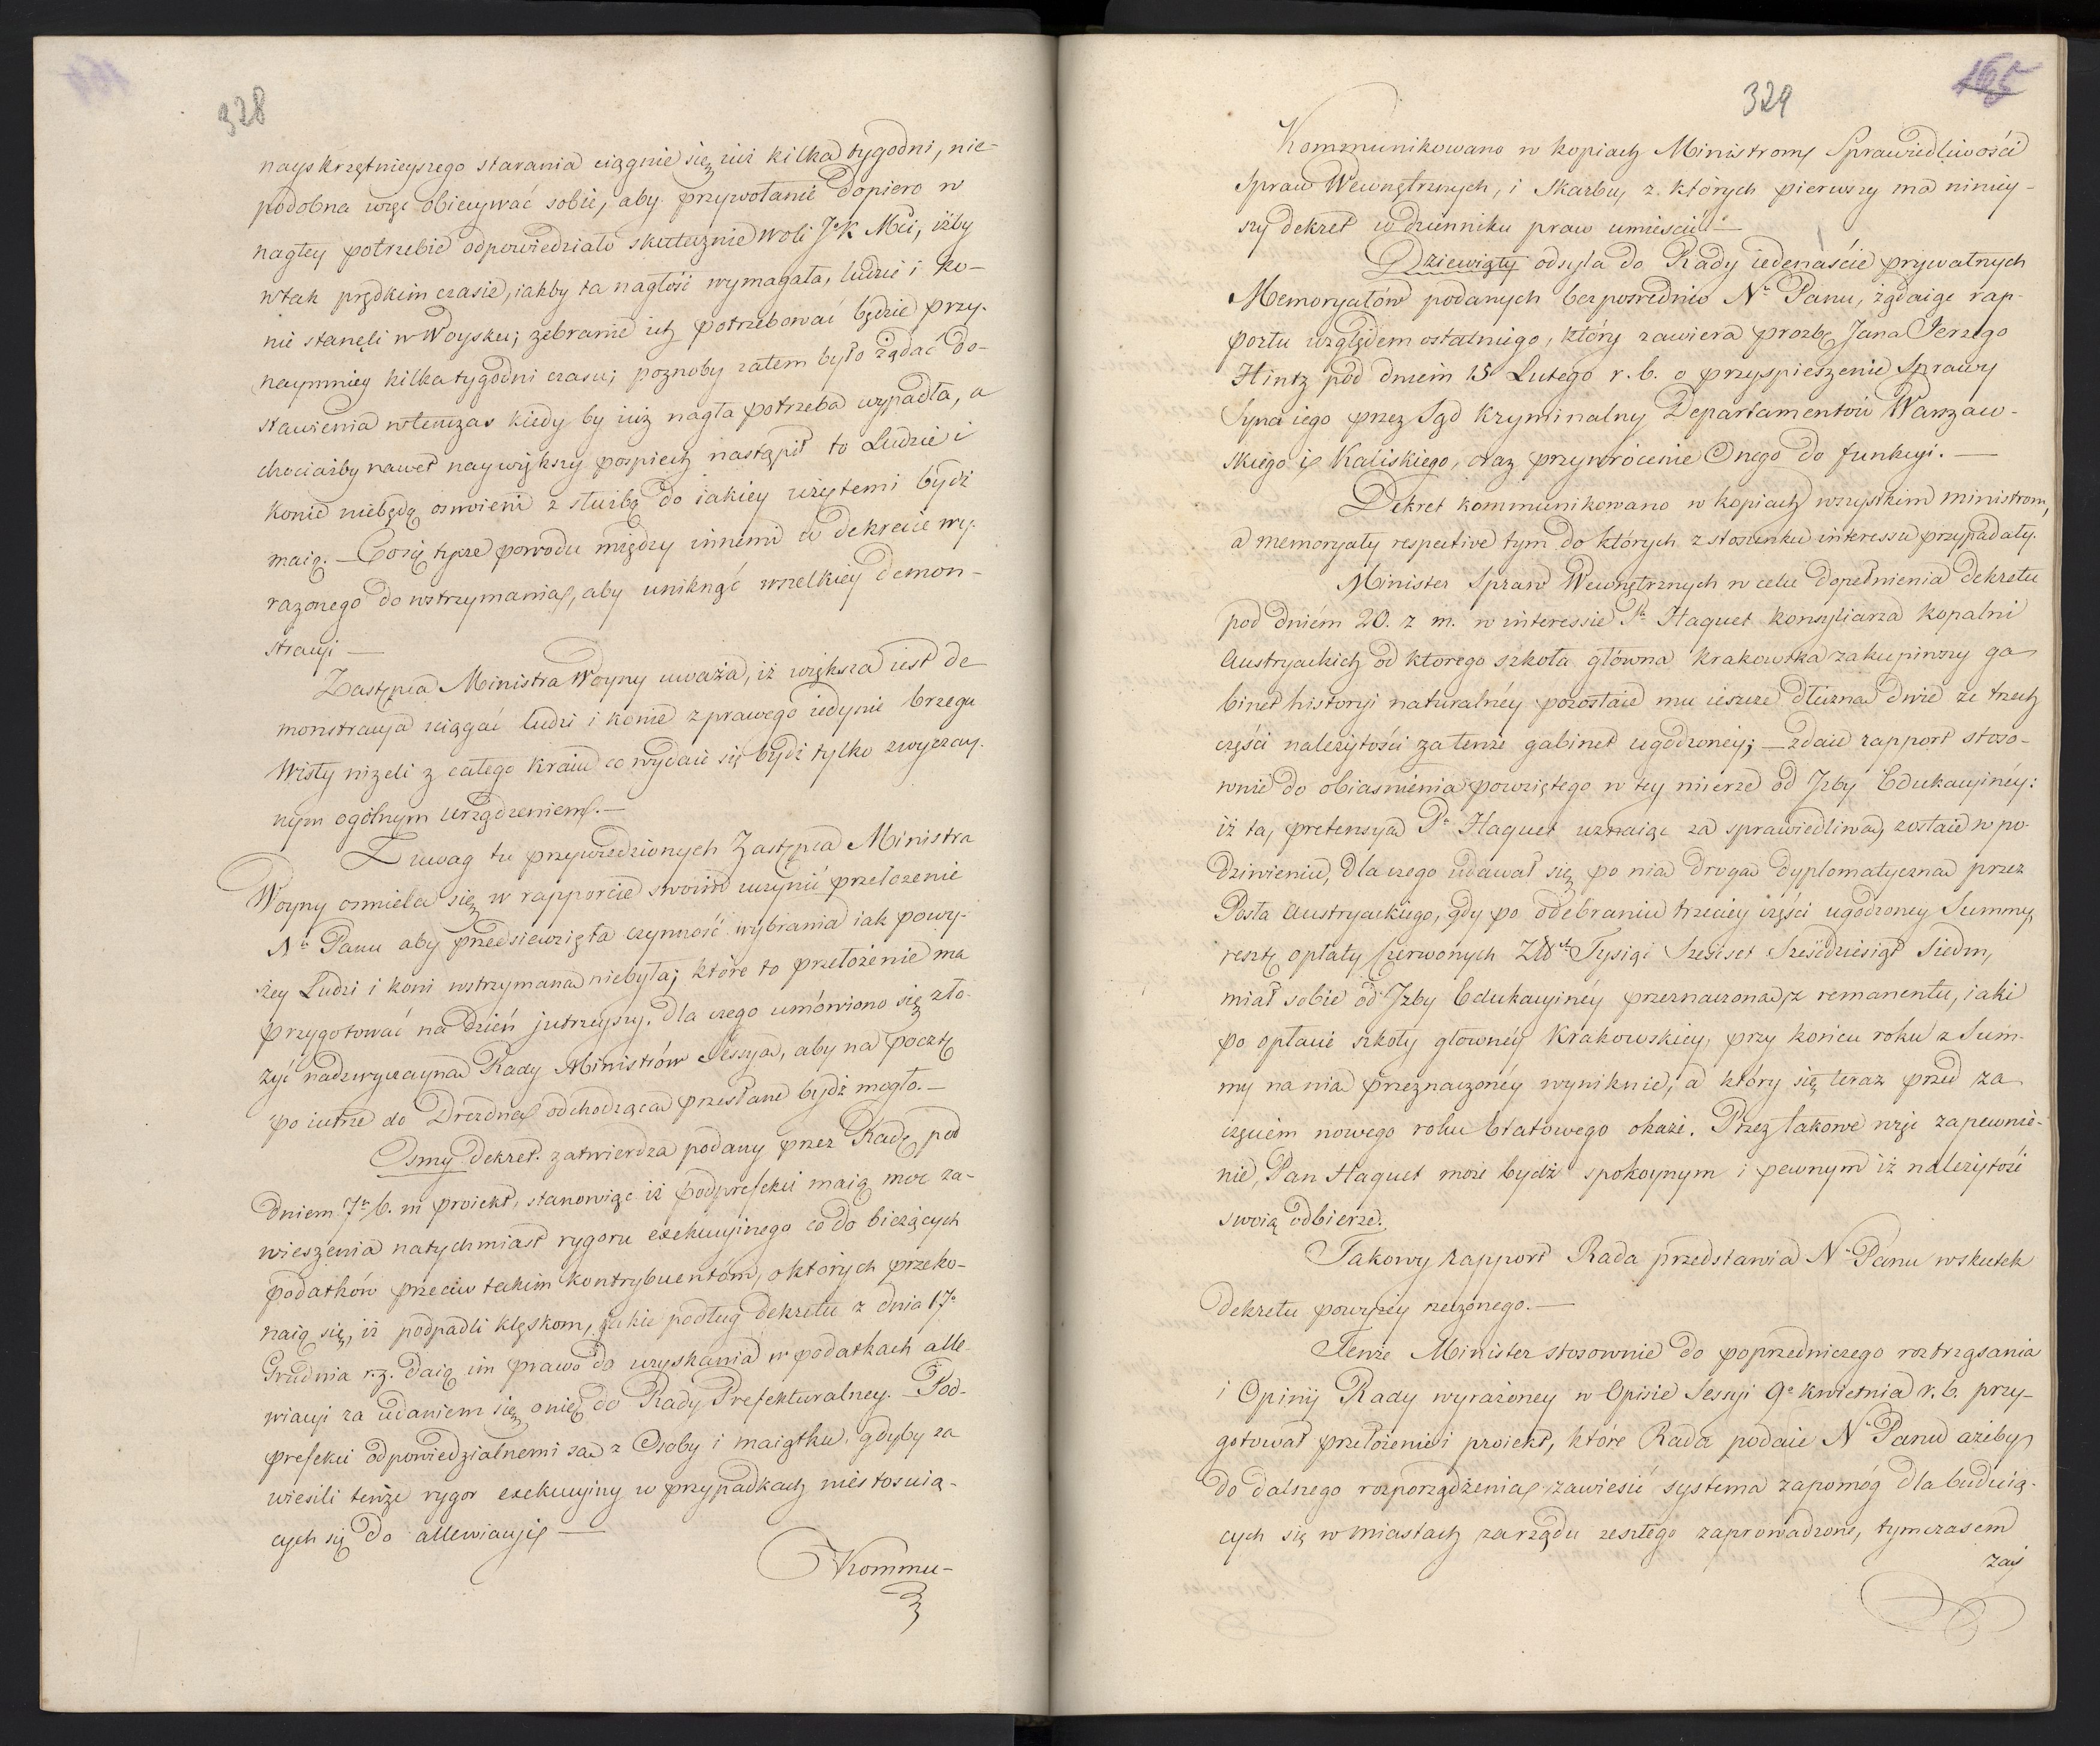 328
nayskrzętnieyszego starania ciągnie się iuż kilka tygodni, nie-
podobna więc obiecywać sobie, aby przywołanie dopiero w
nagłey potrzebie odpowiedziało skutecznie woli JK Mci, iżby
w tak prędkim czasie, iakby ta nagłość wymagała, ludzie i ko-
nie stanęli w Woysku; zebranie ich potrzebować będzie przy-
naymniey kilka tygodni czasu; poznoby zatem było żądać do-
stawienia wtenczas kiedy by iuż nagła potrzeba wypadła, a
chociażby nawet naywiększy pospiech nastąpił to Ludzie i
konie niebędą oswoieni z służbą do iakiey użytemi bydź
maią. — Co się tycze powodu między innemi w dekrecie wy-
rażonego do wstrzymania, aby uniknąć wszelkiey demon-
stracyi —
Zastępca Ministra Woyny uważa, iż większa iest de
monstracya ściągać ludzi i konie z prawego iedynie brzegu
Wisły niżeli z całego kraiu co wydaie się bydź tylko zwyczay-
nym ogólnym urządzeniem. —
Z uwag tu przywiedzionych Zastępca Ministra
Woyny ośmiela się w rapporcie swoim uczynić przełożenie
N. Panu aby przedsiewzięta czynność wybrania iak powy-
żey Ludzi i koni wstrzymana niebyła; które to przełożenie ma
przygotować na dzień jutrzeyszy. dla czego umówiono się zło-
żyć nadzwyczayna Rady Ministrów Sessya, aby na pocztę
po iutrze do Drezdna odchodząca przesłane bydź mogło. —
Osmy dekret zatwierdza podany przez Radę pod
dniem 7. b. m proiekt, stanowiąc iż podprefekci maią moc za-
wieszenia natychmiast rygoru exekucyinego co do bieżących
podatków przeciw takim kontrybuentóm, o których przeko-
naią się, iż podpadli klęskom, jakie podług dekretu z dnia 17.
Grudnia r. z. daią im prawo do uzyskania w podatkach alle-
wiacyi za udaniem się onię do Rady Prefekturalney. Pod-
prefekci odpowiedzialnemi sa z Osoby i maiątku, gdyby za
wiesili tenże rygor exekucyiny w przypadkach niestosuią-
cych się do allewiacyi —
Kommu-
329
165
Kommunikowano w kopiach Ministrom Sprawiedliwości
Spraw Wewnętrznych, i Skarbu, z których pierwszy ma niniey-
szy dekret w dzienniku praw umieścić. —
Dziewiąty odsyła do Rady iedenaście prywatnych
Memoryałów podanych bezpośrednio N. Panu, żądaiąc rap-
portu względem ostatniego, który zawiera prozbę Jana Jerzego
Hintz pod dniem 15 Lutego r. b. o przyspieszenie Sprawy
Syna iego przez Sąd kryminalny Departamentów Warszaw-
skiego i Kaliskiego, oraz przywrócenie Onego do funkcyi. —
Dekret kommunikowano w kopiach wszystkim ministrom,
a memoryały respective tym do których z stosunku interessu przypadały.
Minister Spraw Wewnętrznych w celu dopełnienia dekretu
pod dniém 20. z m. w interessie P. Haquet konsyliarza kopalni
Austryackich od ktorego szkoła główna krakowska zakupiwszy ga
binet historyi naturalnéy pozostaie mu ieszcze dłużna dwie ze trzech
części należytości za tenże gabinet ugodzoney; — zdaie rapport stoso-
wnie do obiaśnienia powziętego w tey mierze od Jzby Edukacyinéy:
iż ta, pretensya P. Haquet uznaiąc za sprawiedliwa, zostaie w po-
dziwieniu, dla czego udawał się po nia droga dyplomatyczna przez
Posła Austryackiego, gdy po odebraniu trzeciey części ugodzoney Summy,
resztę opłaty Czerwonych Zł. Tysiąc Sześćset Sześćdziesiąt Siedm,
miał sobie od Jzby Edukacyinéy przeznaczona, z remanentu, iaki
po opłacie szkoły głownéy Krakowskiey, przy końcu roku z Sum-
my na nia przeznaczonéy wyniknie; a który się teraz przed za
częciém nowego roku Etatowego okaże. Przez takowe więc zapewnie-
nie, Pan Haquet może bydź spokoynym i pewnym iż należytość
swoią odbierze.
Takowy rapport Rada przedstawia N. Panu w skutek
dekretu powyżey rzeczonego. —
Tenże Minister stosownie do poprzedniczego roztrząsania
i Opinij Rady wyrażoney w Opisie Sessyi 9. kwietnia r. b. przy-
gotował przełożenie i proiekt, które Rada podaie N. Panu ażeby
do dalszego rozporządzenia zawiesić systema zapomóg dla buduią-
cych się w miastach zarządu zeszłego zaprowadzone, tymczasem
zaś